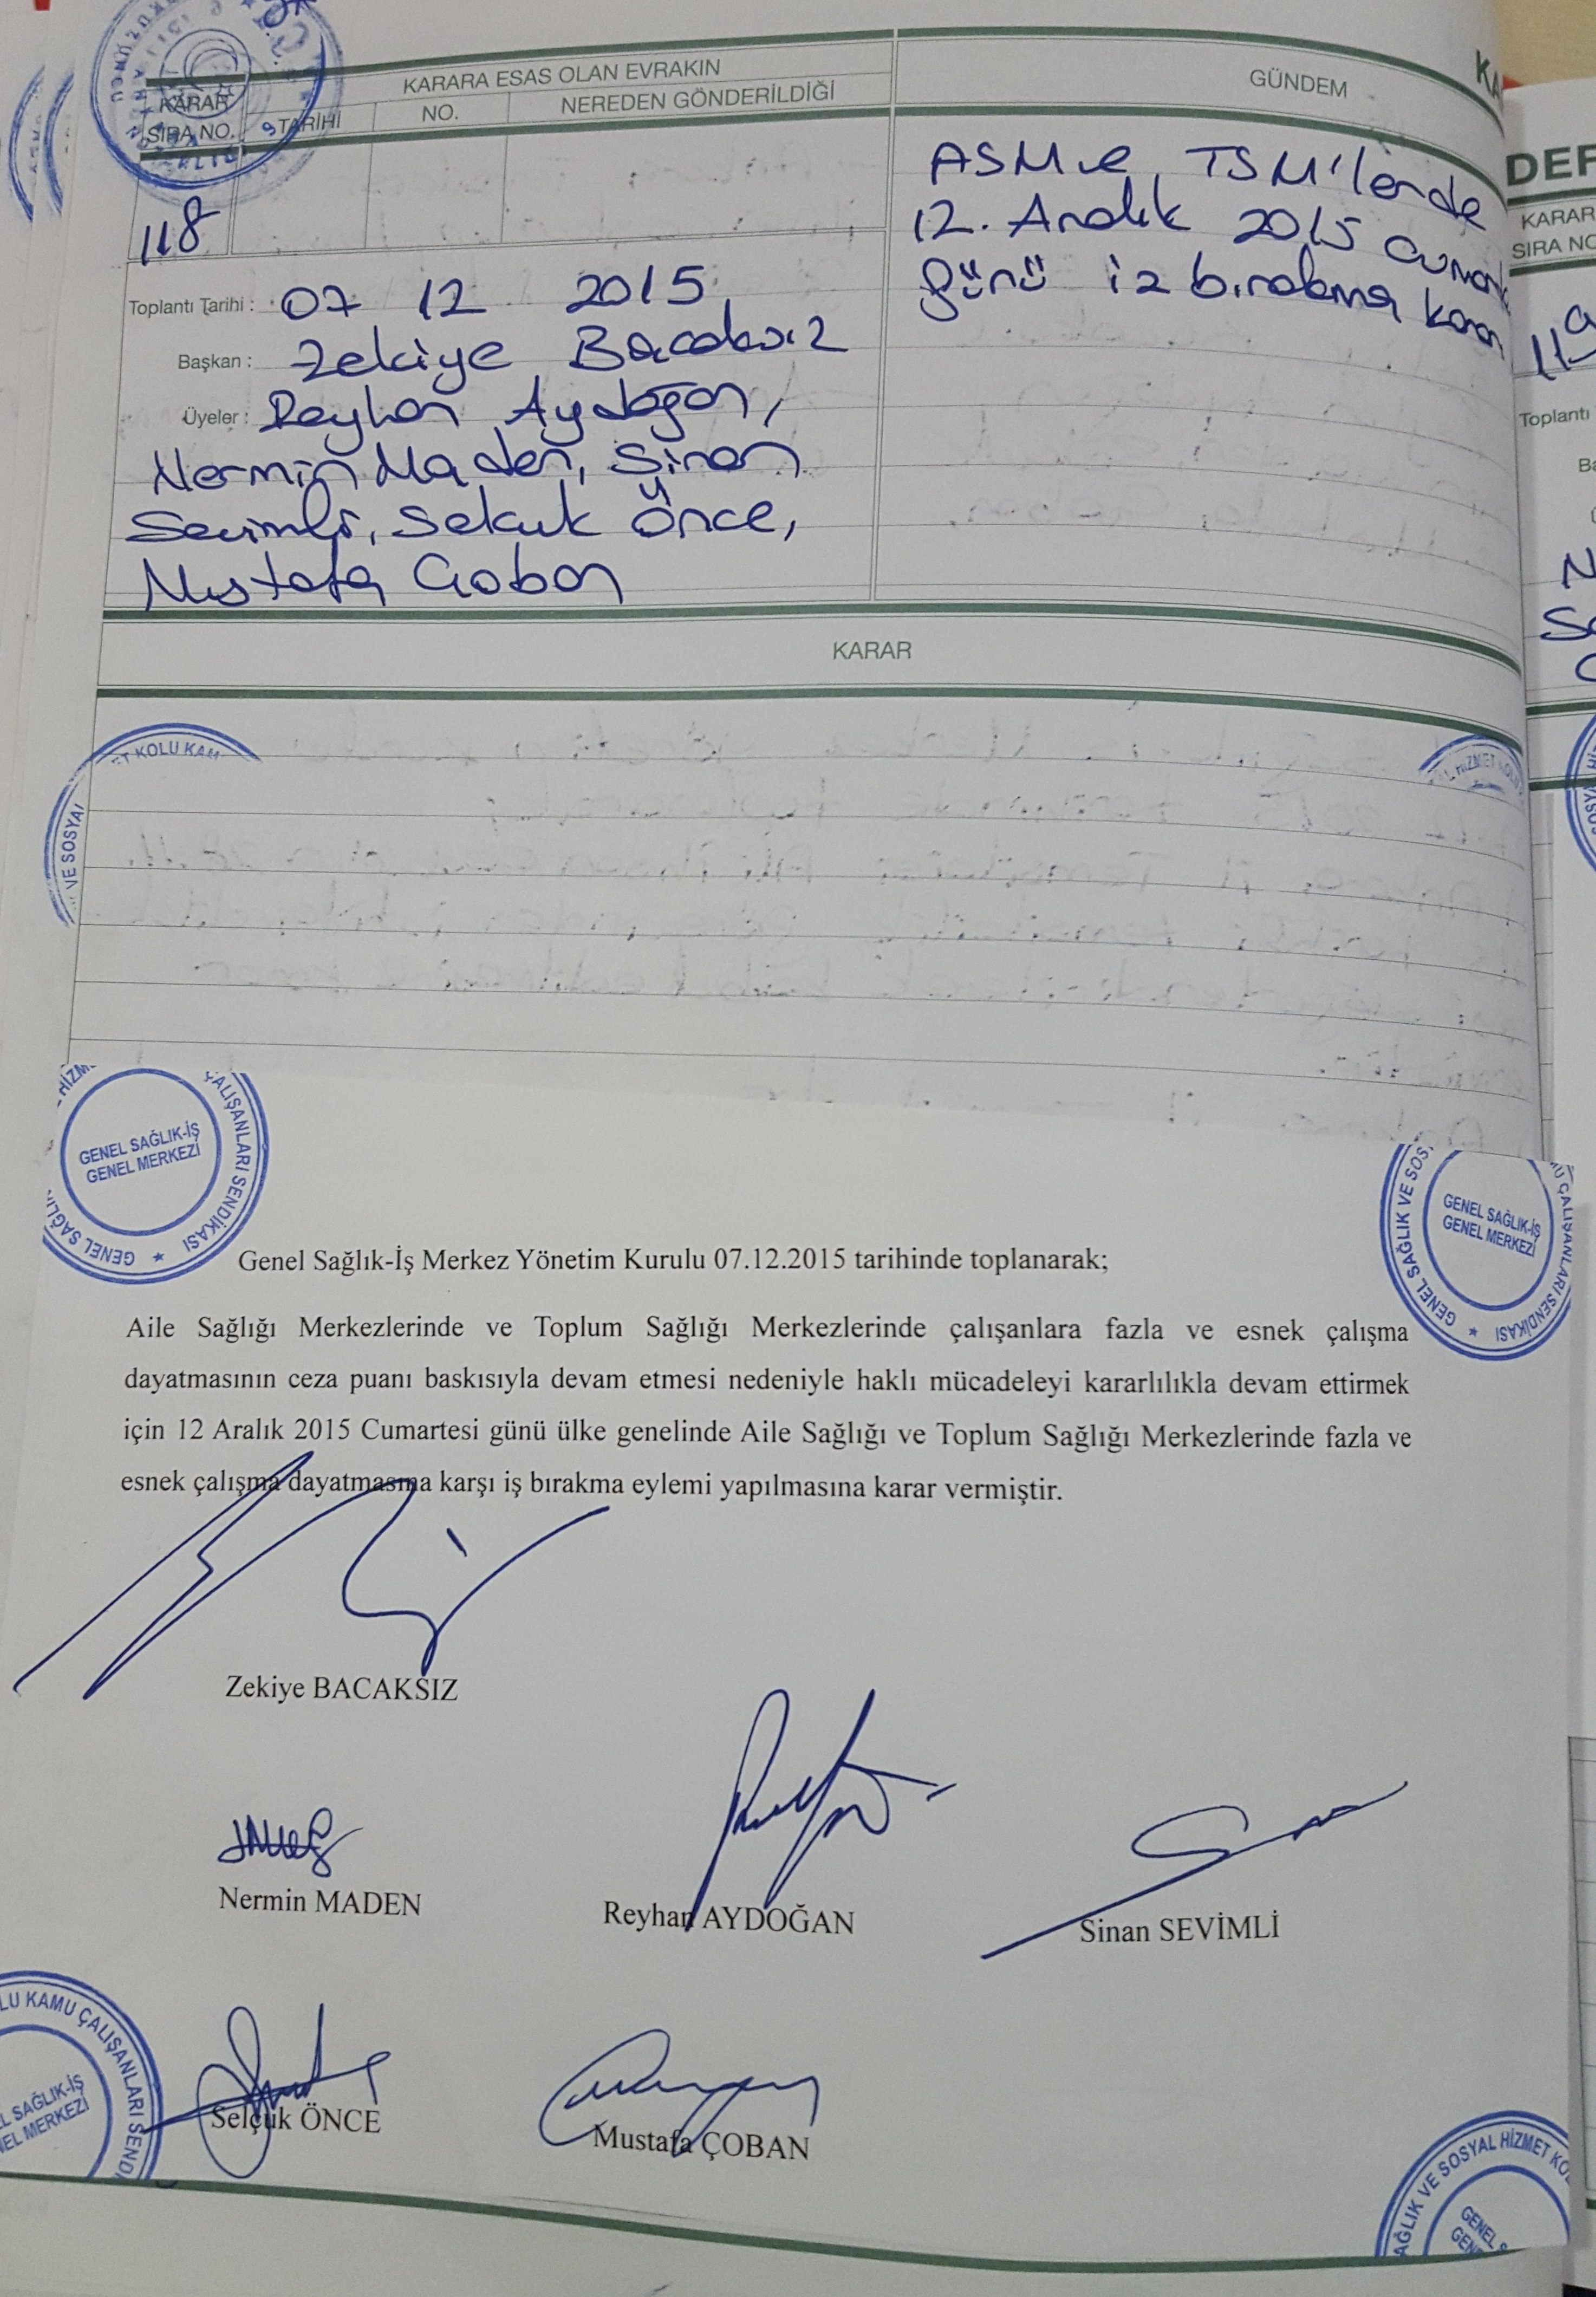 KARAR
SIRA NO.
KARARA ESAS OLAN EVRAKIN
TARİHİ
NO.
NEREDEN GÖNDERİLDİĞİ
GÜNDEM
118
ASM ve TSM'lerde
12. Aralık 2015 cumartesi
günü iş bırakma kararı
Toplantı Tarihi : 07 12 2015
Başkan : Zekiye Bacaksız
Üyeler : Reyhan Aydoğan,
Nermin Maden, Sinan
Sevimli, Selçuk Önce,
Mustafa Çoban
KARAR
ET KOLU KAM
VE SOSYAL
HİZMET KOLU
GENEL SAĞLIK-İŞ
GENEL MERKEZİ
ÇALIŞANLARI SENDİKASI ★ GENEL SAĞLIK
GENEL SAĞLIK-İŞ
GENEL MERKEZİ
GENEL SAĞLIK VE SOS
ÇALIŞANLARI SENDİKASI ★
Genel Sağlık-İş Merkez Yönetim Kurulu 07.12.2015 tarihinde toplanarak;
Aile Sağlığı Merkezlerinde ve Toplum Sağlığı Merkezlerinde çalışanlara fazla ve esnek çalışma
dayatmasının ceza puanı baskısıyla devam etmesi nedeniyle haklı mücadeleyi kararlılıkla devam ettirmek
için 12 Aralık 2015 Cumartesi günü ülke genelinde Aile Sağlığı ve Toplum Sağlığı Merkezlerinde fazla ve
esnek çalışma dayatmasına karşı iş bırakma eylemi yapılmasına karar vermiştir.
Zekiye BACAKSIZ
Nermin MADEN
Reyhan AYDOĞAN
Sinan SEVİMLİ
Selçuk ÖNCE
Mustafa ÇOBAN
LU KAMU ÇALIŞANLARI SENDİ
L SAĞLIK-İŞ
NEL MERKEZİ
AĞLIK VE SOSYAL HİZMET KO
GENEL S
GEN
DEF
KARAR
SIRA NO
119
Toplantı